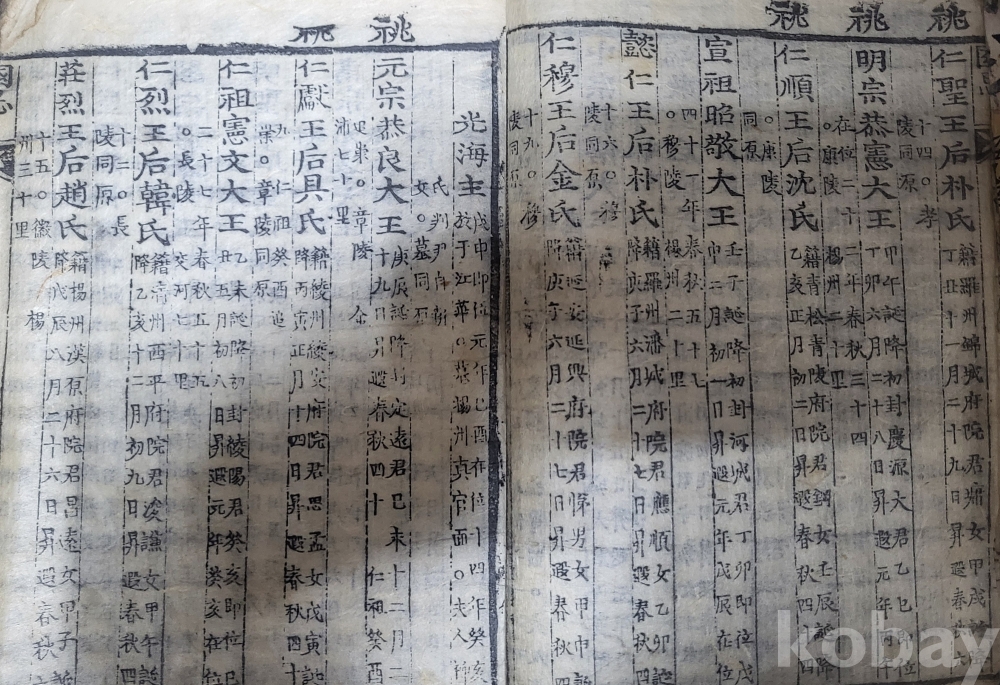 祧 祧 祧
仁聖王后朴氏
籍羅州錦城府院君 女甲戌誕
丁丑十一月二十九日昇遐春秋六
十四。孝
陵同原
明宗恭憲大王
甲午誕降初封慶源大君乙巳即位
丁卯六月二十八日昇遐元年丙午
在位二十二年春秋三十四
。康陵 楊州二十里
仁順王后沈氏
籍青松青陵府院君鋼女壬辰誕降
乙亥正月初二日昇遐春秋四十四
。康陵
同原
宣祖昭敬大王
壬子誕降初封河城君丁卯即位戊
申二月初一日昇遐元年戊辰在位
四十一年春秋五十七
。穆陵 楊州二十里
懿仁王后朴氏
籍羅州潘城府院君應順女乙卯誕
降庚子六月二十七日昇遐春秋四
十六。穆
陵同原
仁穆王后金氏
籍延安延興府院君悌男女甲申誕
降 六月二十 日昇遐春秋四
十九。穆
陵同原
祧 祧
光海主
戊申即位元年己酉在位十四年癸亥
放于江華。墓楊州真官面。夫人柳
氏判尹自新
女。墓同原
元宗恭良大王
庚辰誕降封定遠君己未十二月二
十九日昇遐春秋四十 仁祖癸酉
追崇。章陵 金
浦七十里
仁獻王后具氏
籍綾州綾安府院君思孟女戊寅誕
降丙寅正月十四日昇遐春秋四十
九仁祖癸酉追
崇。章陵同原
仁祖憲文大王
乙未誕降初封綾陽君癸亥即位己
丑五月初八日昇遐元年癸亥在位
二十七年春秋五十五
。長陵 交河七十里
仁烈王后韓氏
籍清州西平府院君浚謙女甲午誕
降乙亥十二月初九日昇遐春秋四
十二。長
陵同原
莊烈王后趙氏
籍楊州漢原府院君昌遠女甲子誕
降戊辰八月二十六日昇遐春秋
十五。徽陵 楊
州三十里
kobay